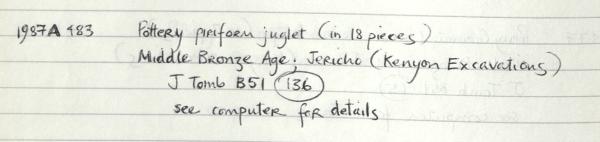 1987A 483 Pottery piriform juglet (in 18 pieces)
Middle Bronze Age; Jericho (Kenyon Excavations)
J Tomb B51 136
see computer for details